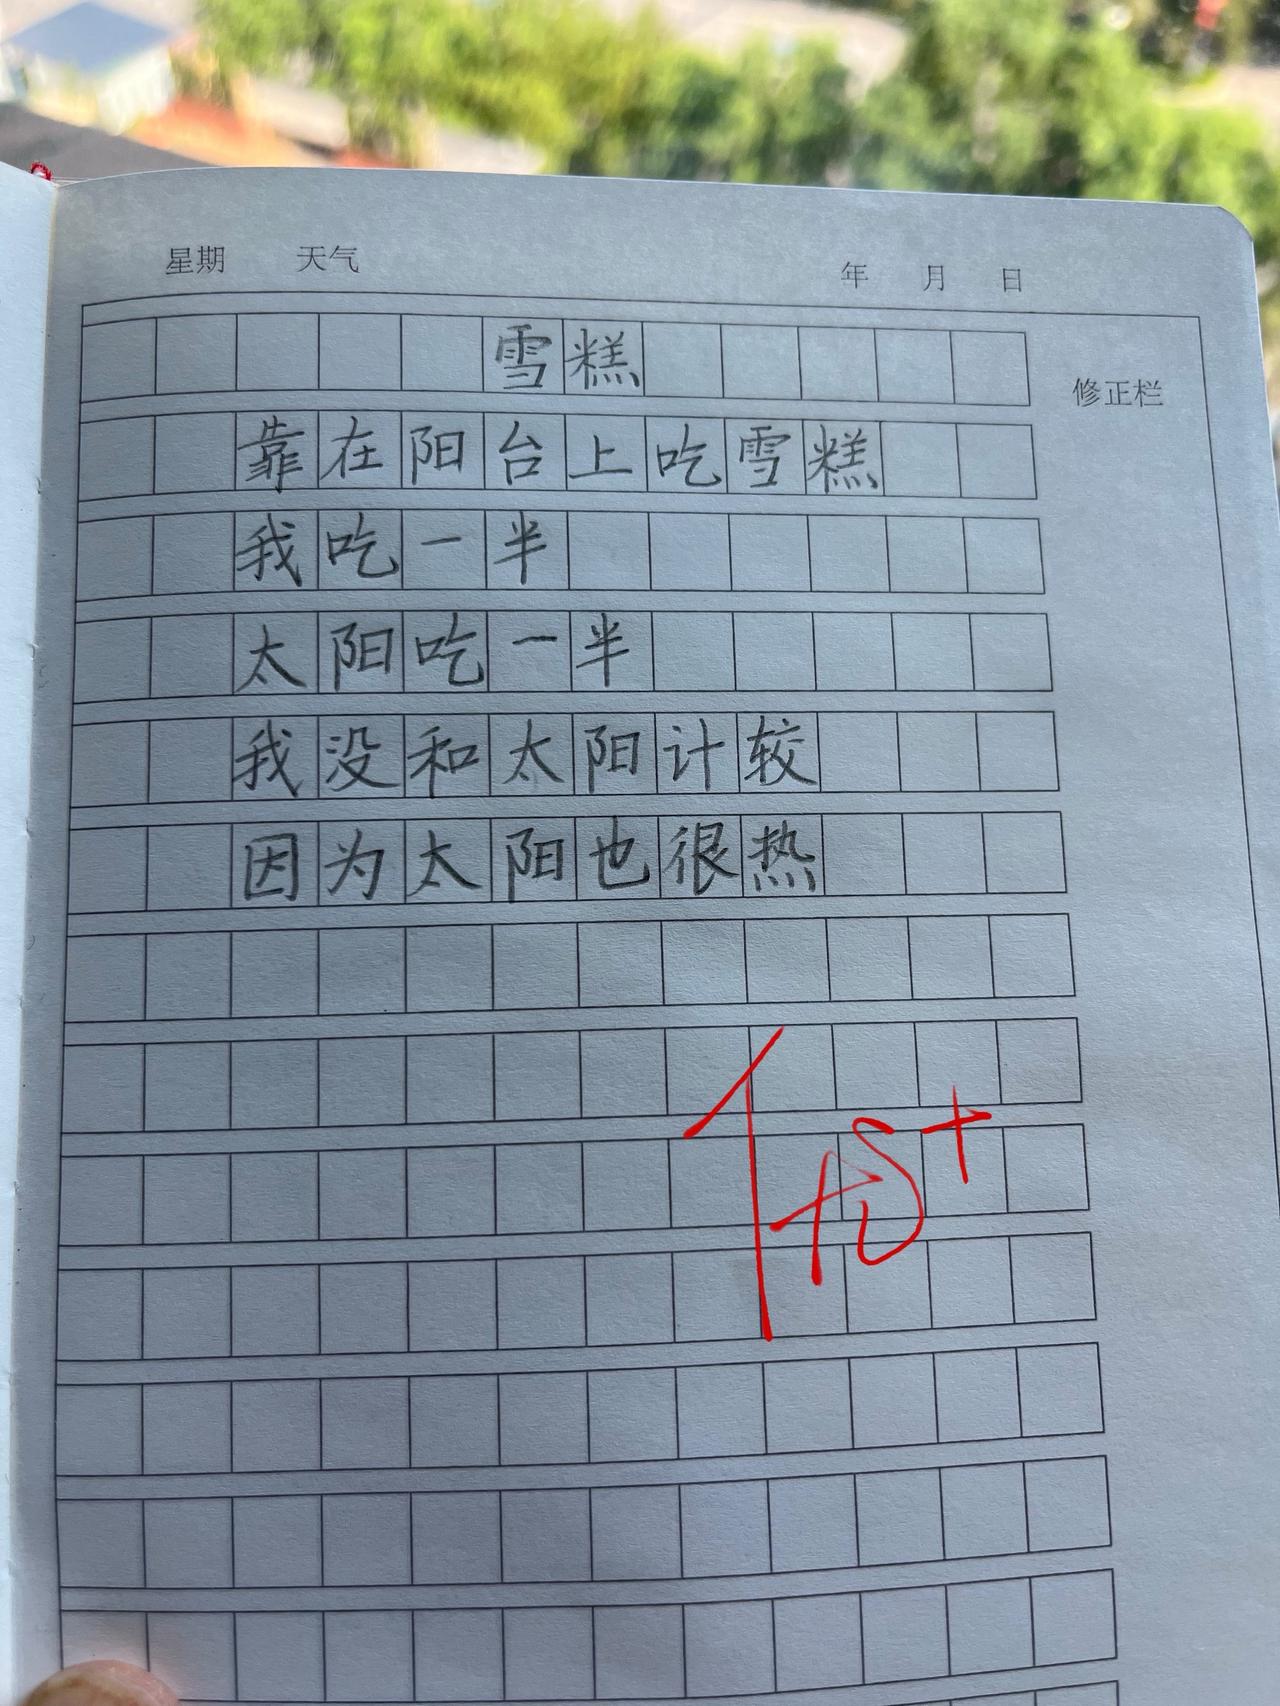 星期 天气 年 月 日
雪糕
修正栏
靠在阳台上吃雪糕
我吃一半
太阳吃一半
我没和太阳计较
因为太阳也很热
优+